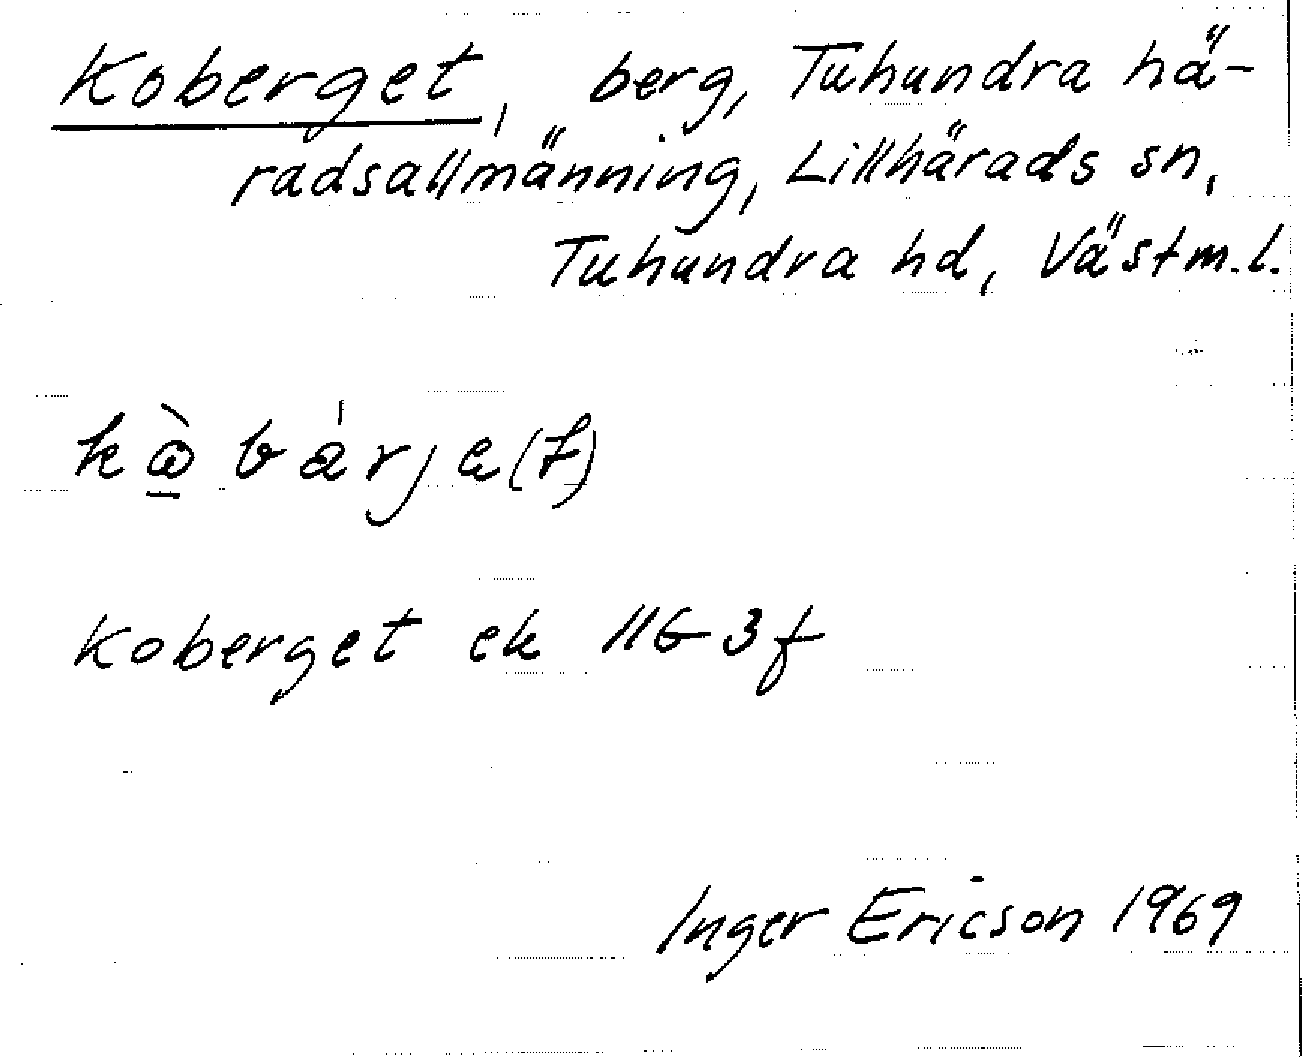 Koberget, berg, Tuhundra hä-
radsallmänning, Lillhärads sn,
Tuhundra hd, Västm.l.
Koberget ek 11G 3f
Inger Ericson 1969